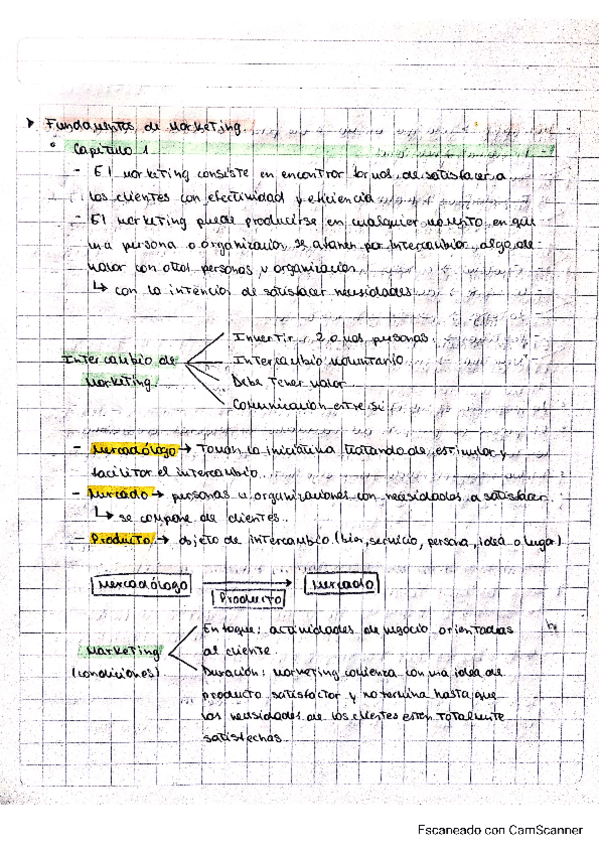 Fundamentos de Marketing
Capitulo 1
- El marketing consiste en encontrar formas de satisfacer a
los clientes con efectividad y eficiencia
- El marketing puede producirse en cualquier momento en que
una persona o organización se afanen por intercambiar algo de
valor con otras personas u organización
↳ con la intención de satisfacer necesidades
Intercambio de
Marketing
Invertir 2 o más personas
Intercambio voluntario
Debe tener valor
Comunicación entre sí
- Mercadólogo → Toman la iniciativa tratando de estimular y
facilitar el intercambio
- Mercado → personas u organizaciones con necesidades a satisfacer
↳ se compone de clientes
- Producto → objeto de intercambio (bien, servicio, persona, idea o lugar)
Mercadólogo → Mercado
Producto
Marketing
(condiciones)
Enfoque: actividades de negocio orientadas
al cliente
Duración: marketing comienza con una idea de
producto satisfactor y no termina hasta que
las necesidades de los clientes estén totalmente
satisfechas
Escaneado con CamScanner